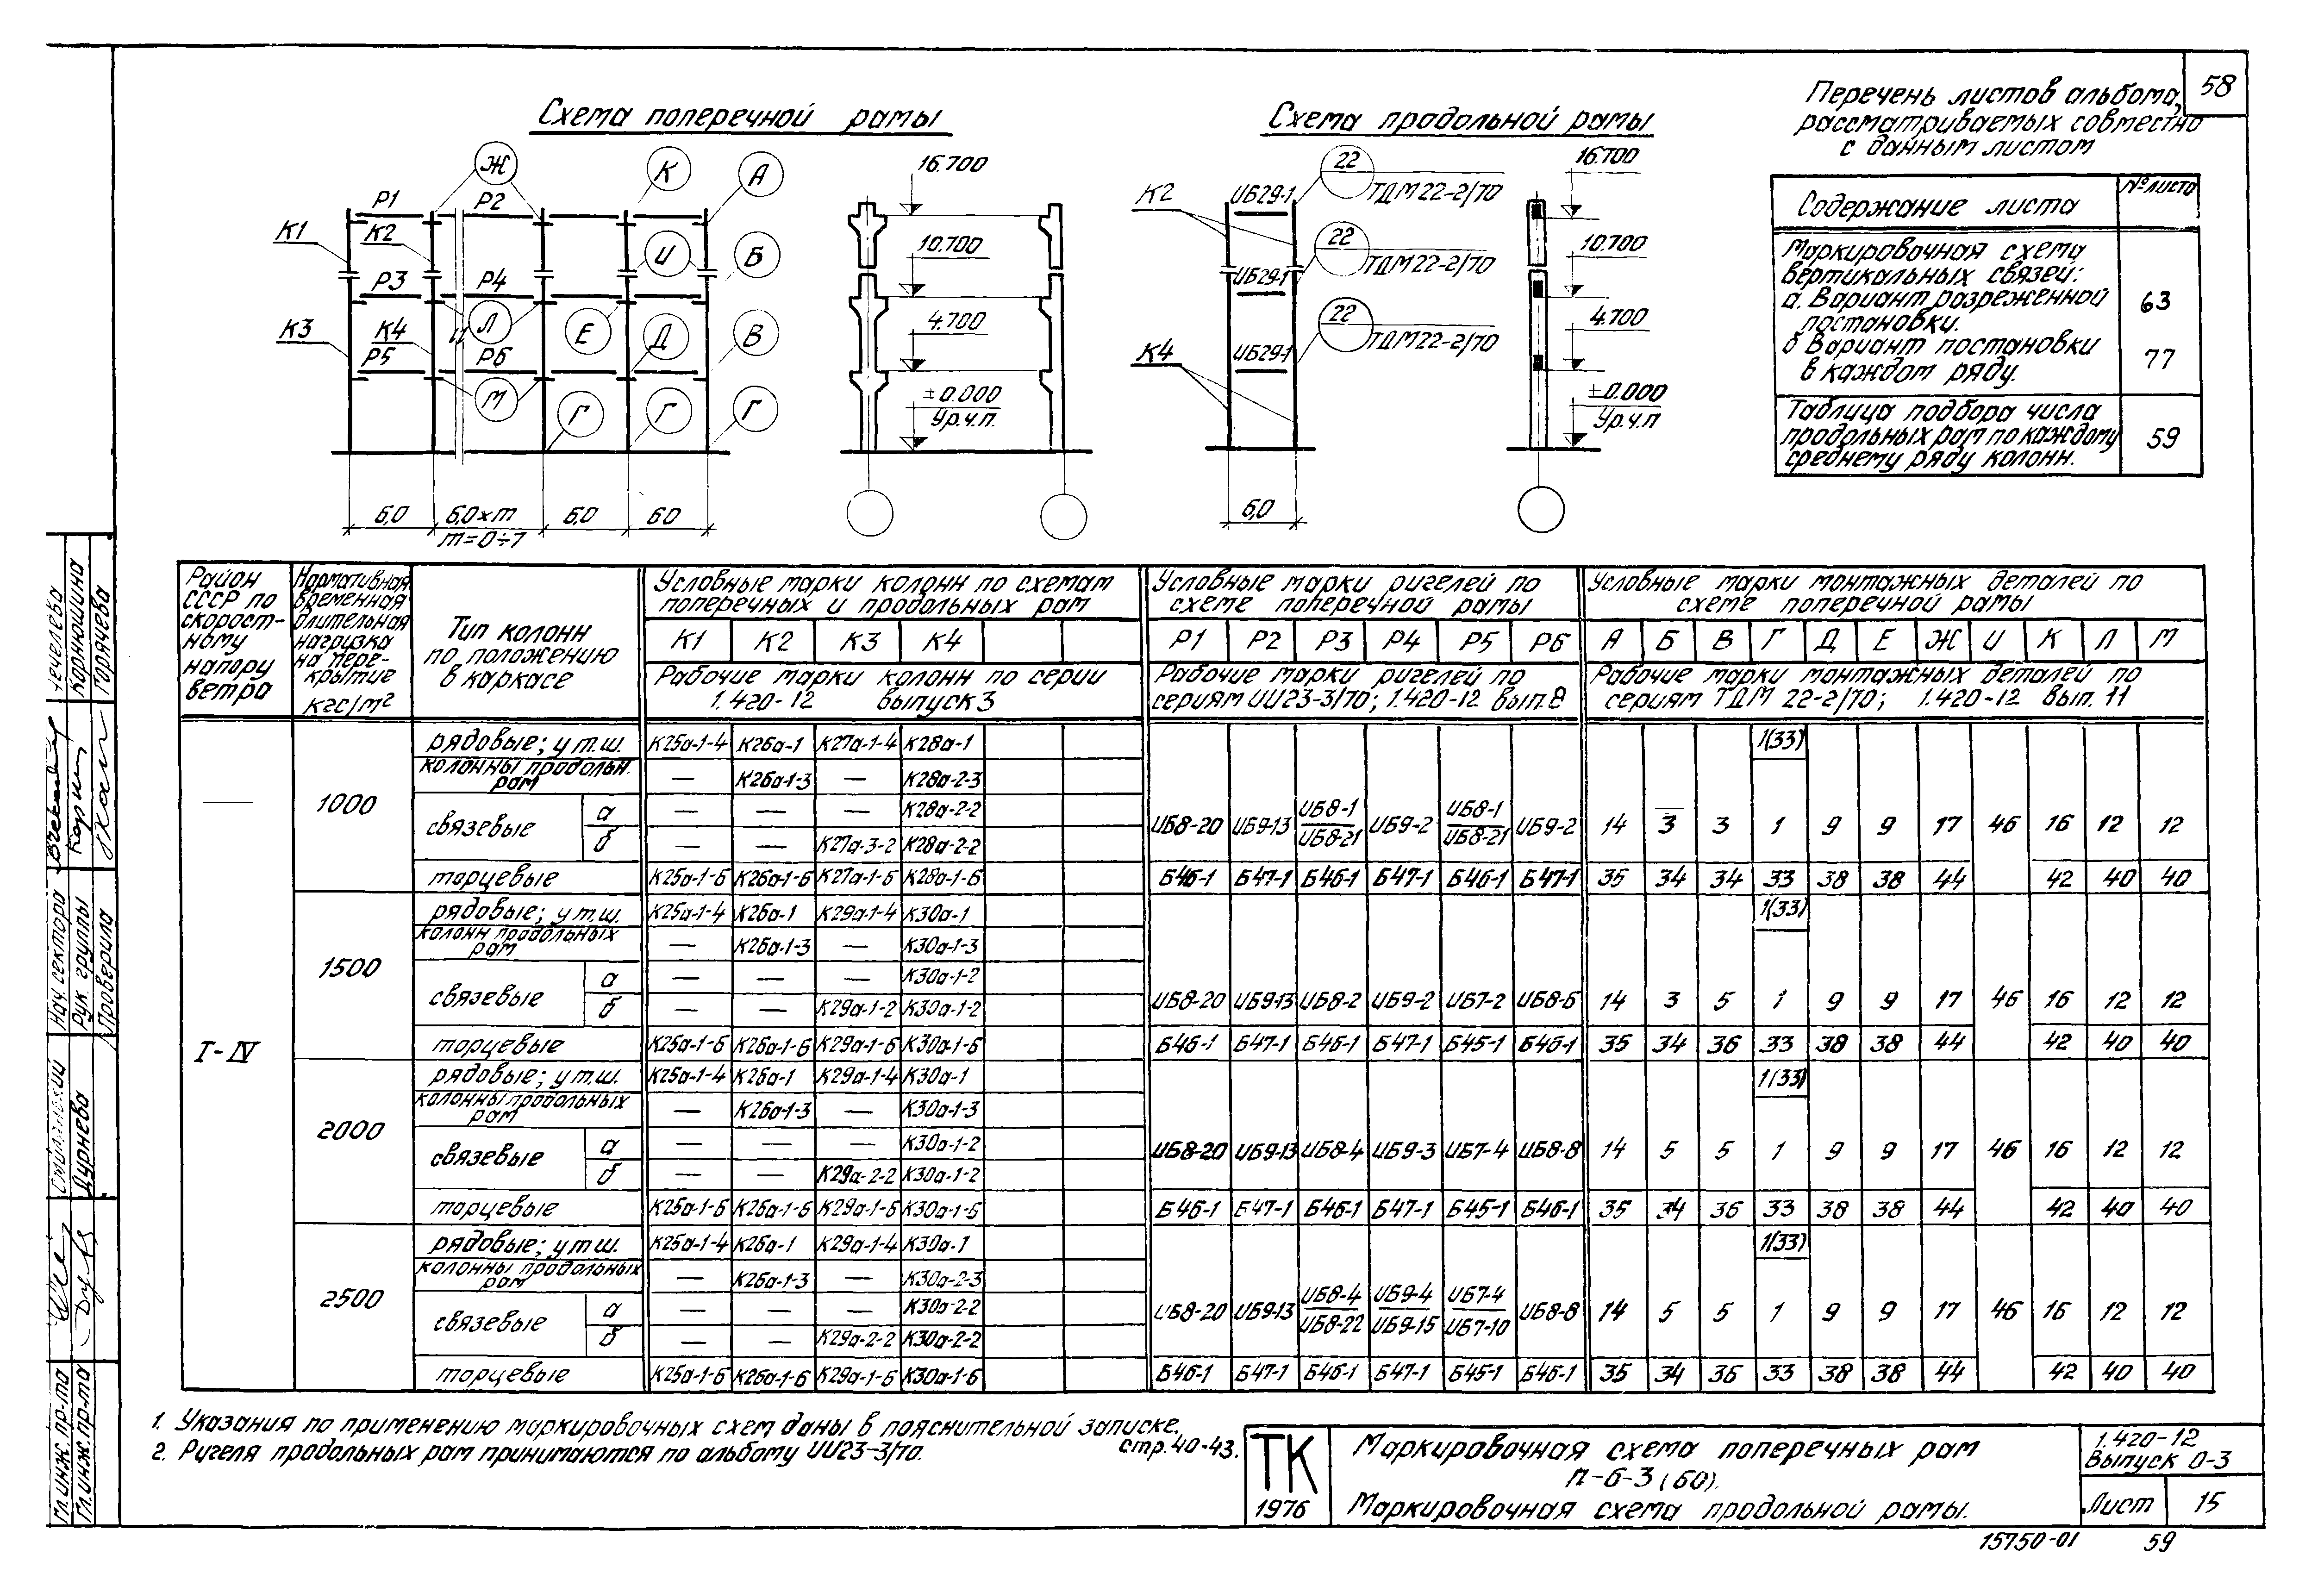 58
Схема поперечной рамы
Схема продольной рамы
Перечень листов альбома,
рассматриваемых совместно
с данным листом
Содержание листа
№ листа
Маркировочная схема
вертикальных связей:
а. Вариант разреженной
постановки.
63
б Вариант постановки
в каждом ряду.
77
Таблица подбора числа
продольных рам по каждому
среднему ряду колонн.
59
Ж
К
А
Р1
Р2
К1
К2
И
Б
Р3
Р4
Л
Е
Д
В
К3
К4
Р5
Р6
М
Г
Г
Г
6,0
6,0×m
6,0
6,0
m=0÷7
16.700
10.700
4.700
±0.000
Ур.ч.п.
К2
ИБ29-1
22
ТДМ22-2/70
ИБ29-1
22
ТДМ22-2/70
К4
ИБ29-1
22
ТДМ22-2/70
6,0
16.700
10.700
4.700
±0.000
Ур.ч.п
Район
СССР по
скорост-
ному
напору
ветра
Нормативная
временная
длительная
нагрузка
на пере-
крытие
кгс/м²
Тип колонн
по положению
в каркасе
Условные марки колонн по схемам
поперечных и продольных рам
К1 К2 К3 К4
Рабочие марки колонн по серии
1.420-12 выпуск 3
Условные марки ригелей по
схеме поперечной рамы
Р1 Р2 Р3 Р4 Р5 Р6
Рабочие марки ригелей по
сериям ИИ23-3/70; 1.420-12 вып.8
Условные марки монтажных деталей по
схеме поперечной рамы
А Б В Г Д Е Ж И К Л М
Рабочие марки монтажных деталей по
сериям ТДМ 22-2/70; 1.420-12 вып. 11
—
I-IV
1000
рядовые; у т.ш. К25а-1-4 К26а-1 К27а-1-4 К28а-1 1(33)
колонны продольн. рам — К26а-1-3 — К28а-2-3
связевые
а — — — К28а-2-2
б — — К27а-3-2 К28а-2-2
ИБ8-20 ИБ9-13 ИБ8-1 ИБ8-21 ИБ9-2 ИБ8-1 ИБ8-21 ИБ9-2 14 3 3 1 9 9 17 46 16 12 12
торцевые К25а-1-6 К26а-1-6 К27а-1-6 К28а-1-6 Б46-1 Б47-1 Б46-1 Б47-1 Б46-1 Б47-1 35 34 34 33 38 38 44 42 40 40
1500
рядовые; у т.ш. К25а-1-4 К26а-1 К29а-1-4 К30а-1 1(33)
колонн продольных рам — К26а-1-3 — К30а-1-3
связевые
а — — — К30а-1-2
б — — К29а-1-2 К30а-1-2
ИБ8-20 ИБ9-13 ИБ8-2 ИБ9-2 ИБ7-2 ИБ8-6 14 3 5 1 9 9 17 46 16 12 12
торцевые К25а-1-6 К26а-1-6 К29а-1-6 К30а-1-6 Б46-1 Б47-1 Б46-1 Б47-1 Б45-1 Б46-1 35 34 36 33 38 38 44 42 40 40
2000
рядовые; у т.ш. К25а-1-4 К26а-1 К29а-1-4 К30а-1 1(33)
колонны продольных рам — К26а-1-3 — К30а-1-3
связевые
а — — — К30а-1-2
б — — К29а-2-2 К30а-1-2
ИБ8-20 ИБ9-13 ИБ8-4 ИБ9-3 ИБ7-4 ИБ8-8 14 5 5 1 9 9 17 46 16 12 12
торцевые К25а-1-6 К26а-1-6 К29а-1-6 К30а-1-6 Б46-1 Б47-1 Б46-1 Б47-1 Б45-1 Б46-1 35 34 36 33 38 38 44 42 40 40
2500
рядовые; у т.ш. К25а-1-4 К26а-1 К29а-1-4 К30а-1 1(33)
колонны продольных рам — К26а-1-3 — К30а-2-3
связевые
а — — — К30а-2-2
б — — К29а-2-2 К30а-2-2
ИБ8-20 ИБ9-13 ИБ8-4 ИБ8-22 ИБ9-4 ИБ9-15 ИБ7-4 ИБ7-10 ИБ8-8 14 5 5 1 9 9 17 46 16 12 12
торцевые К25а-1-6 К26а-1-6 К29а-1-6 К30а-1-6 Б46-1 Б47-1 Б46-1 Б47-1 Б45-1 Б46-1 35 34 36 33 38 38 44 42 40 40
1. Указания по применению маркировочных схем даны в пояснительной записке,
стр.40-43.
2. Ригеля продольных рам принимаются по альбому ИИ23-3/70.
ТК
1976
Маркировочная схема поперечных рам
п-6-3 (60).
Маркировочная схема продольной рамы.
1.420-12
Выпуск 0-3
Лист 15
15750-01 59
Гл.инж.пр-та
Гл.инж.пр-та
Дурнева
Нач.сектора
Рук. группы
Проверила
Корнюшина
Горячева